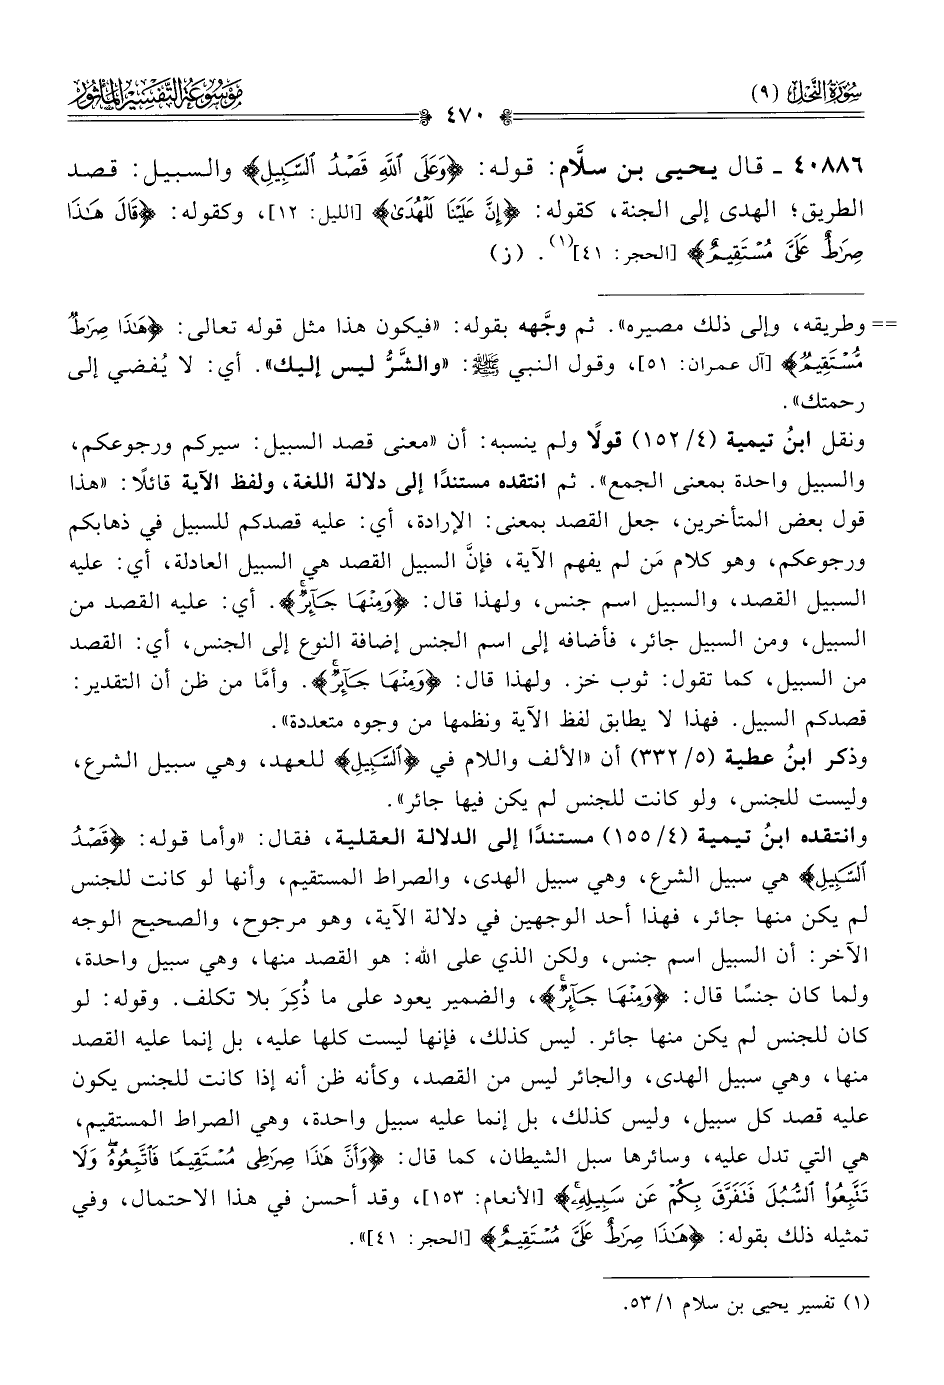 سُورَةُ النَّحْلِ (٩)
٤٧٠
مَوْسُوعَةُ التَّفْسِيرِ المَأْثُور
٤٠٨٨٦ ـ قال يحيى بن سلَّام: قوله: ﴿وَعَلَى ٱللَّهِ قَصْدُ ٱلسَّبِيلِ﴾ والسبيل: قصد
الطريق؛ الهدى إلى الجنة، كقوله: ﴿إِنَّ عَلَيْنَا لَلْهُدَىٰ﴾ [الليل: ١٢]، وكقوله: ﴿قَالَ هَٰذَا
صِرَٰطٌ عَلَىَّ مُسْتَقِيمٌ﴾ [الحجر: ٤١](١). (ز)
== وطريقه، وإلى ذلك مصيره». ثم وجَّهه بقوله: «فيكون هذا مثل قوله تعالى: ﴿هَٰذَا صِرَٰطٌ
مُّسْتَقِيمٌ﴾ [آل عمران: ٥١]، وقول النبي ﷺ: «والشَّرُّ ليس إليك». أي: لا يُفضي إلى
رحمتك».
ونقل ابنُ تيمية (٤/ ١٥٢) قولًا ولم ينسبه: أن «معنى قصد السبيل: سيركم ورجوعكم،
والسبيل واحدة بمعنى الجمع». ثم انتقده مستندًا إلى دلالة اللغة، ولفظ الآية قائلًا: «هذا
قول بعض المتأخرين، جعل القصد بمعنى: الإرادة، أي: عليه قصدكم للسبيل في ذهابكم
ورجوعكم، وهو كلام مَن لم يفهم الآية، فإنَّ السبيل القصد هي السبيل العادلة، أي: عليه
السبيل القصد، والسبيل اسم جنس، ولهذا قال: ﴿وَمِنْهَا جَآئِرٌۚ﴾. أي: عليه القصد من
السبيل، ومن السبيل جائر، فأضافه إلى اسم الجنس إضافة النوع إلى الجنس، أي: القصد
من السبيل، كما تقول: ثوب خز. ولهذا قال: ﴿وَمِنْهَا جَآئِرٌۚ﴾. وأمَّا من ظن أن التقدير:
قصدكم السبيل. فهذا لا يطابق لفظ الآية ونظمها من وجوه متعددة».
وذكر ابنُ عطية (٥/ ٣٣٢) أن «الألف واللام في ﴿ٱلسَّبِيلِ﴾ للعهد، وهي سبيل الشرع،
وليست للجنس، ولو كانت للجنس لم يكن فيها جائر».
وانتقده ابنُ تيمية (٤/ ١٥٥) مستندًا إلى الدلالة العقلية، فقال: «وأما قوله: ﴿قَصْدُ
ٱلسَّبِيلِ﴾ هي سبيل الشرع، وهي سبيل الهدى، والصراط المستقيم، وأنها لو كانت للجنس
لم يكن منها جائر، فهذا أحد الوجهين في دلالة الآية، وهو مرجوح، والصحيح الوجه
الآخر: أن السبيل اسم جنس، ولكن الذي على الله: هو القصد منها، وهي سبيل واحدة،
ولما كان جنسًا قال: ﴿وَمِنْهَا جَآئِرٌۚ﴾، والضمير يعود على ما ذُكِرَ بلا تكلف. وقوله: لو
كان للجنس لم يكن منها جائر. ليس كذلك، فإنها ليست كلها عليه، بل إنما عليه القصد
منها، وهي سبيل الهدى، والجائر ليس من القصد، وكأنه ظن أنه إذا كانت للجنس يكون
عليه قصد كل سبيل، وليس كذلك، بل إنما عليه سبيل واحدة، وهي الصراط المستقيم،
هي التي تدل عليه، وسائرها سبل الشيطان، كما قال: ﴿وَأَنَّ هَٰذَا صِرَٰطِى مُسْتَقِيمًا فَٱتَّبِعُوهُۖ وَلَا
تَتَّبِعُوا۟ ٱلسُّبُلَ فَتَفَرَّقَ بِكُمْ عَن سَبِيلِهِۦۚ﴾ [الأنعام: ١٥٣]، وقد أحسن في هذا الاحتمال، وفي
تمثيله ذلك بقوله: ﴿هَٰذَا صِرَٰطٌ عَلَىَّ مُسْتَقِيمٌ﴾ [الحجر: ٤١]».
(١) تفسير يحيى بن سلام ١/ ٥٣.